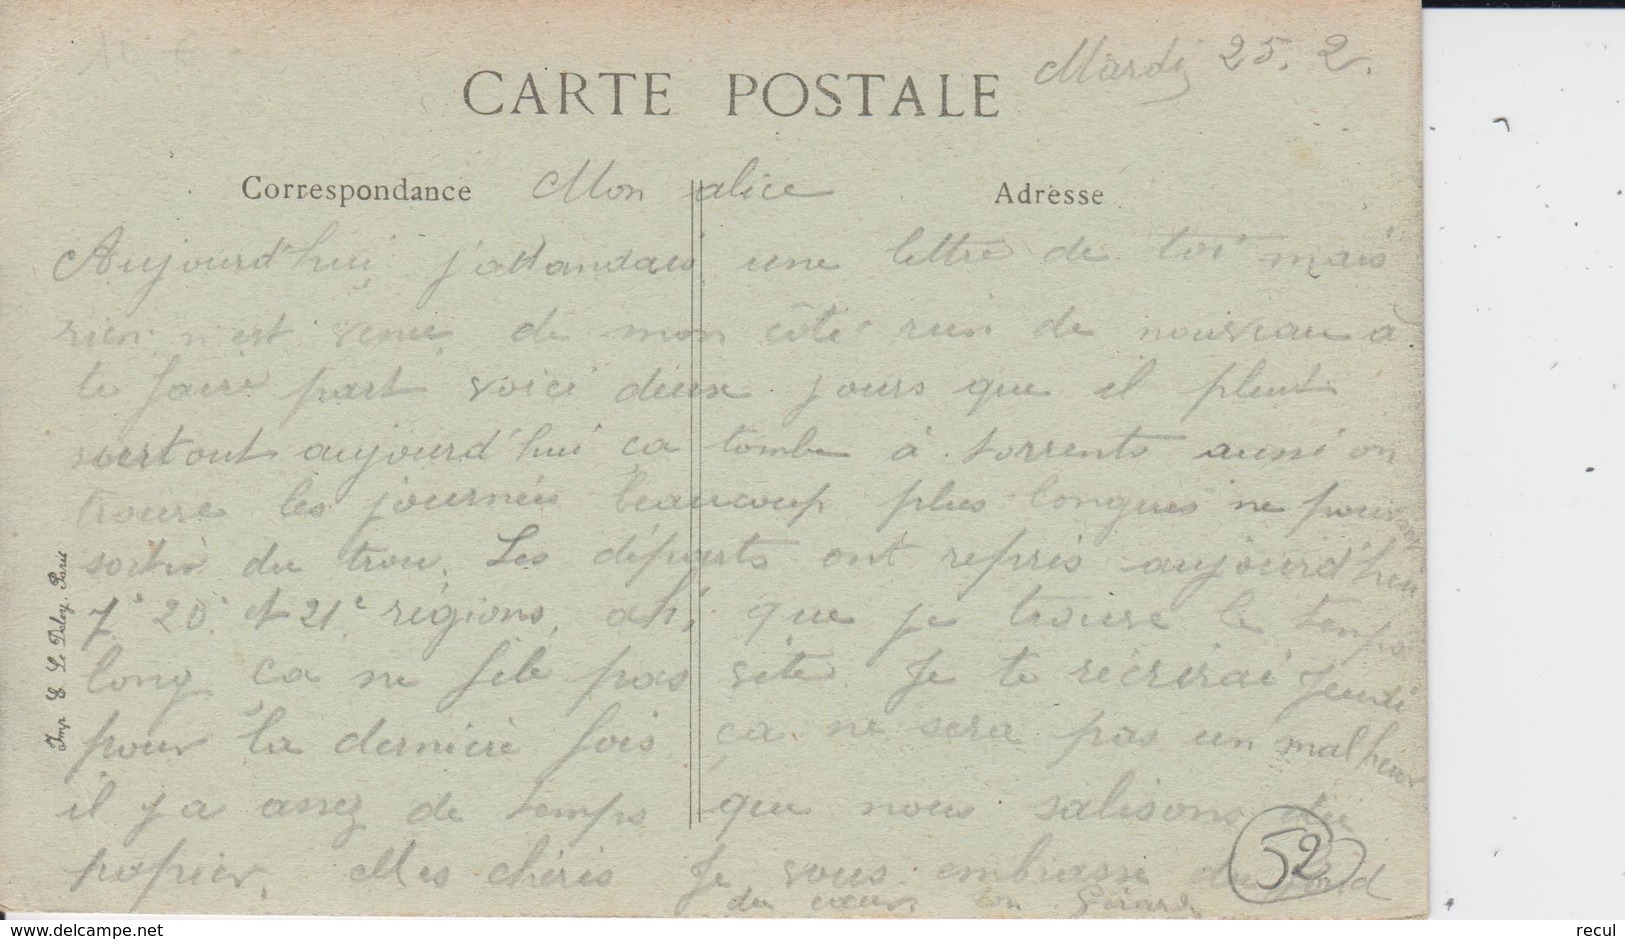 Mardi 25. 2.
CARTE POSTALE
Correspondance
Adresse
Mon alice
Aujourd'hui j'attandais une lettre de toi mais
rien n'est venu de mon côté rien de nouveau à
te faire part voici deux jours que il pleut
surtout aujourd'hui ça tombe à torrents aussi on
trouve les journées beaucoup plus longues ne pouvant
sortir du trou. Les départs ont repris aujourd'hui
7e 20e et 21e régions, ah! que je trouve le temps
long ça ne file pas vite Je te récrirai Jeudi
pour la dernière fois ça ne sera pas un malheur
il y a assez de temps que nous salisons du
papier. Mes chéris Je vous embrasse du fond
du cœur ton Gérard
Imp. E. Le Deley, Paris
52
delcampe.net
recul